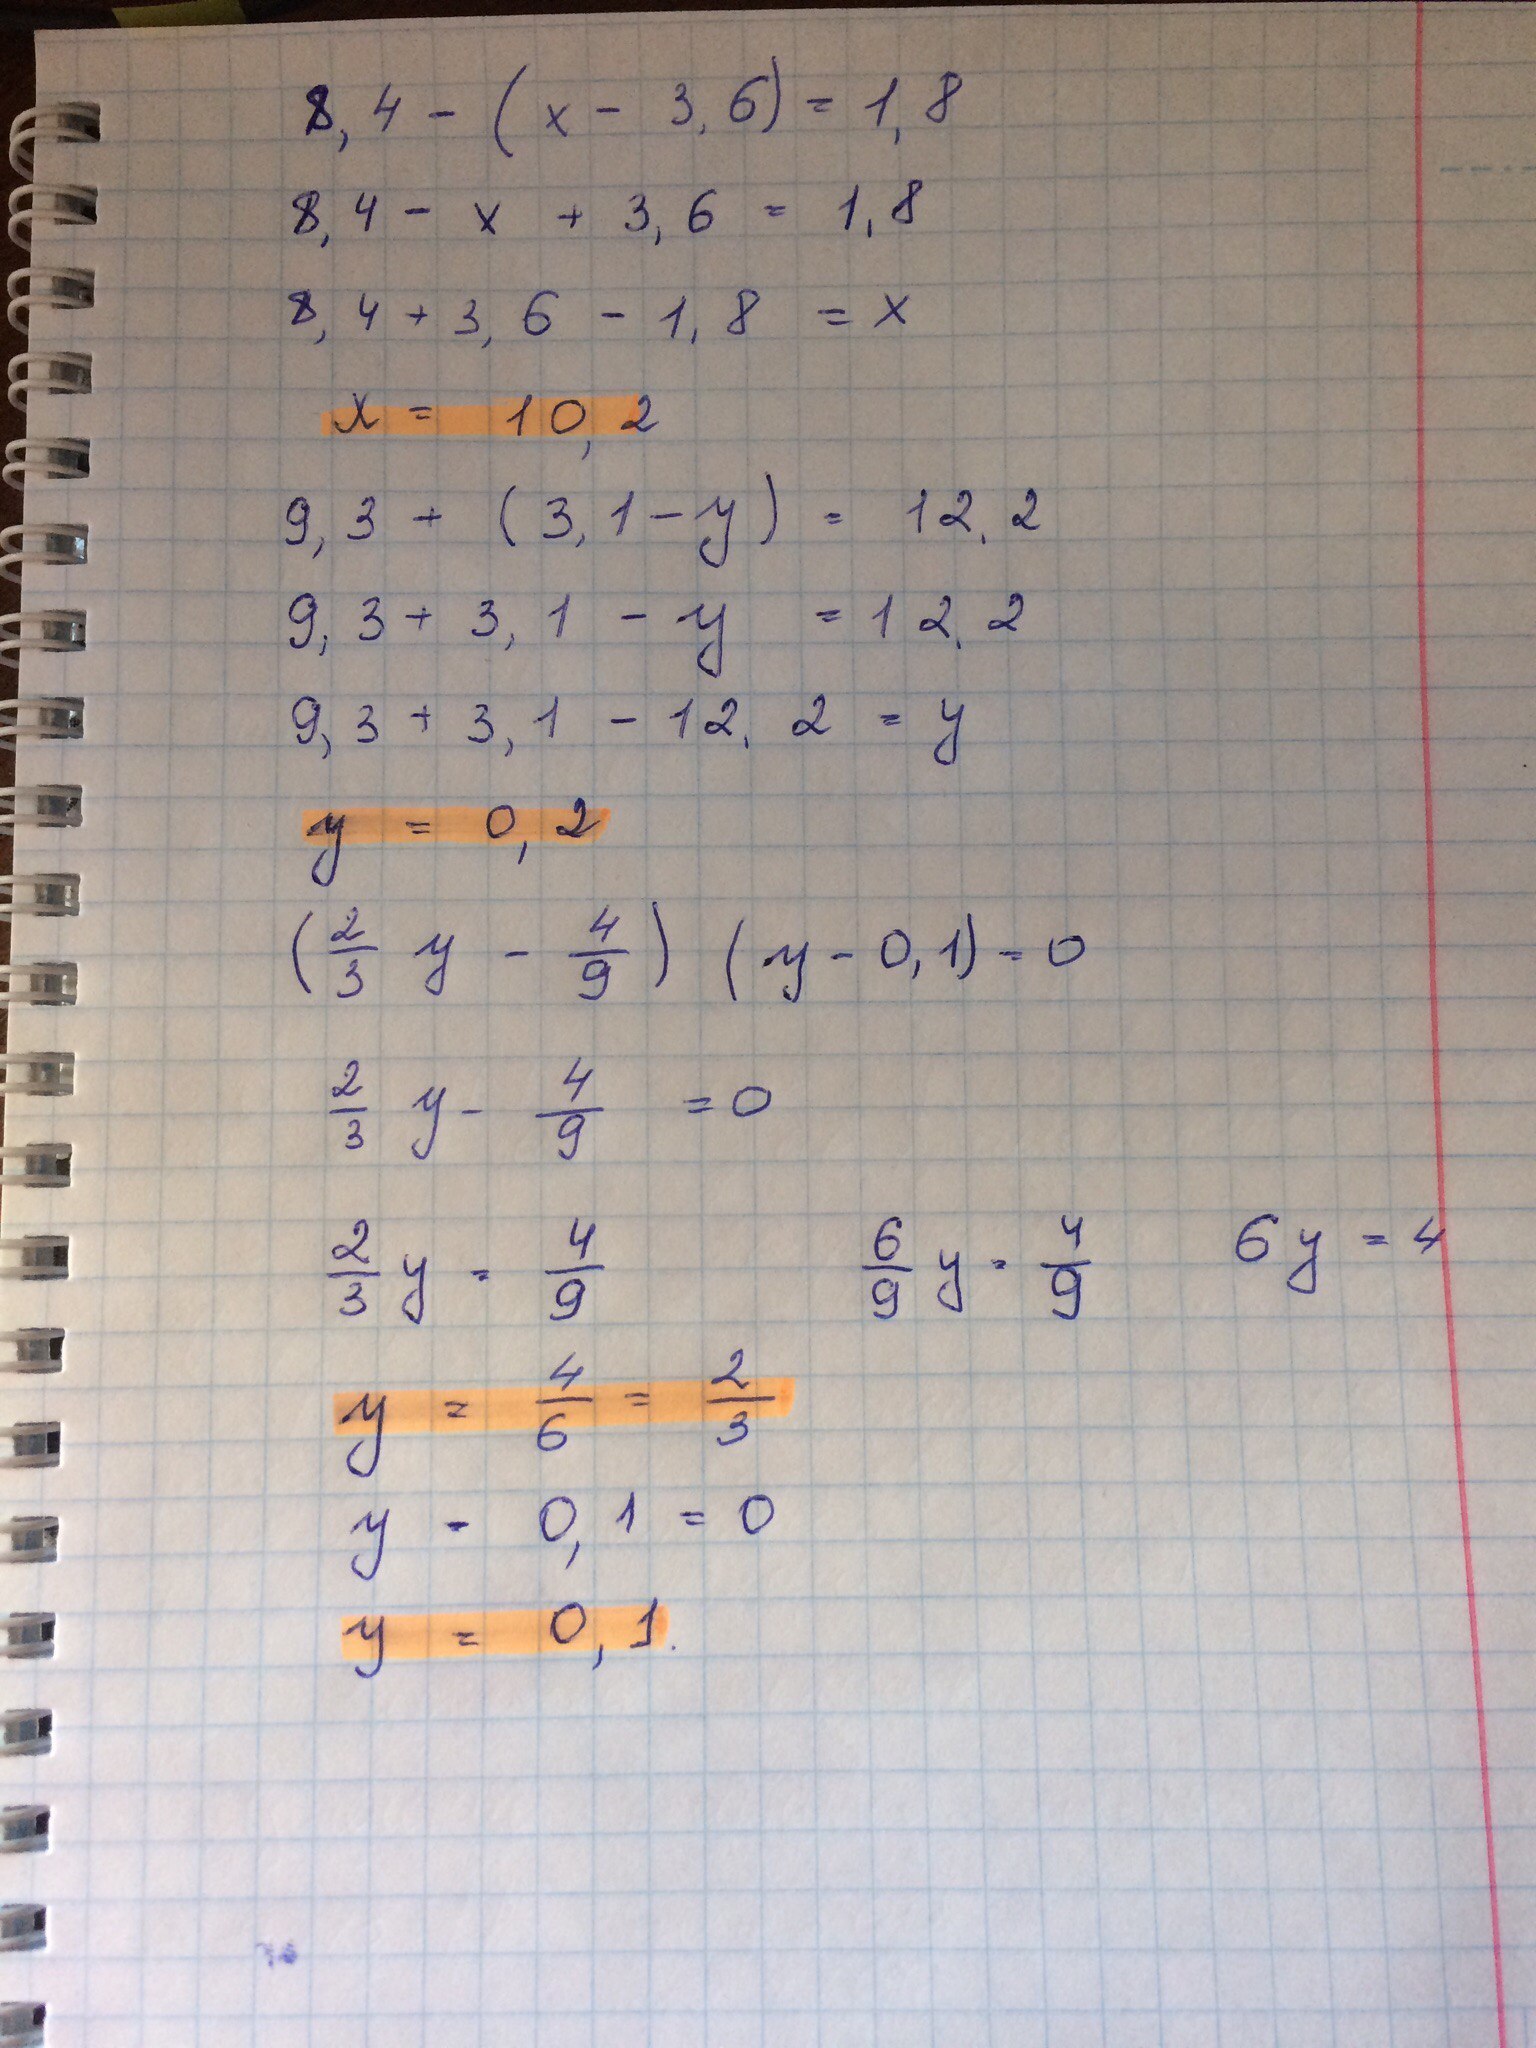 8,4 - (x - 3,6) = 1,8
8,4 - x + 3,6 = 1,8
8,4 + 3,6 - 1,8 = x
x = 10,2
9,3 + (3,1 - y) = 12.2
9,3 + 3,1 - y = 12.2
9,3 + 3,1 - 12.2 = y
y = 0,2
(2/3 y - 4/9) (y - 0,1) = 0
2/3 y - 4/9 = 0
2/3 y = 4/9 6/9 y = 4/9 6y = 4
y = 4/6 = 2/3
y - 0,1 = 0
y = 0,1.